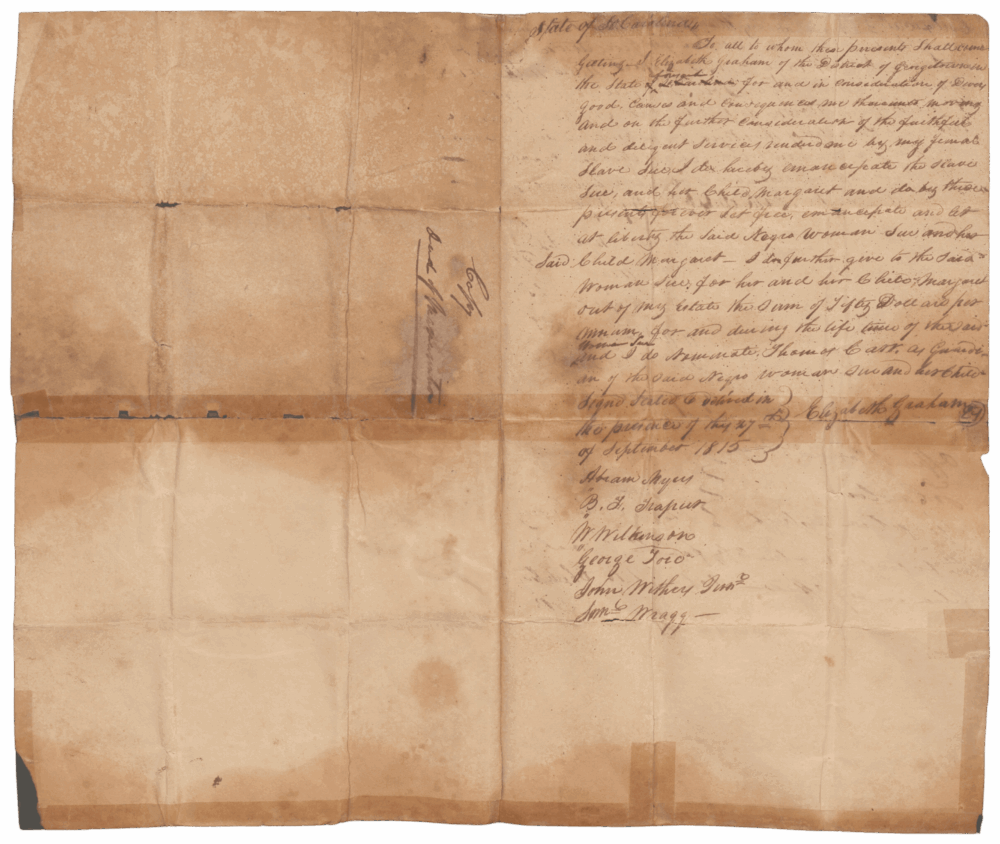 State of So Carolina
To all to whom these presents Shall come
Greeting I Elizabeth Graham of the District of Georgetown in
the State aforesaid for and in consideration of Divers
good Causes and Consequences me thereunto moving
And on the further Consideration of the faithful
and diligent Services rendered me by my female
Slave Sue, I do hereby emancipate the slave
Sue, and her Child Margaret and do by these
presents forever Set free, emancipate and let
at liberty the Said Negro Woman Sue and her
Said Child Margaret – I do further give to the Said
Woman Sue, for her and her Child, Margaret
out of my Estate the Sum of Fifty Dollars per
annum, for and during the life time of the said
Sue
And I do Nominate Thomas Carr, as Guardi-
an of the Said Negro Woman Sue and her Child
Signd Sealed &
the presence of this 27th
of September 1815
Elizabeth Graham
Abram Myers
B. F. Trapier
W Wilkinson
George Ford
John Withers Junr
Saml Wragg –
Copy
Deed of